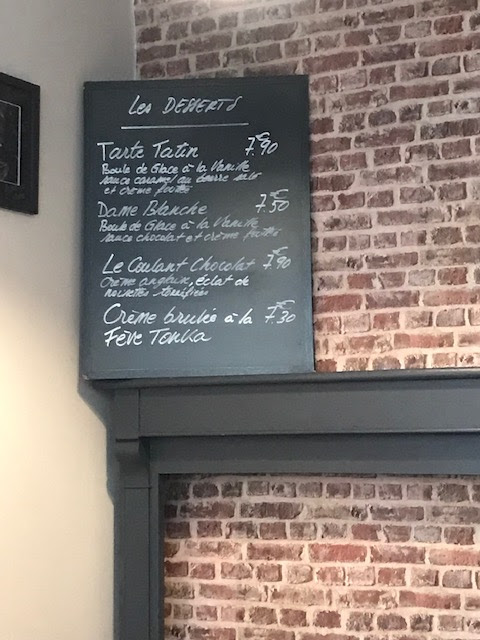 Les DESSERTS
Tarte Tatin 7.€90
Boule de Glace à la Vanille
sauce caramel au beurre salé
et crème fouettée
Dame Blanche 7.€50
Boule de Glace à la Vanille
sauce chocolat et crème fouettée
Le Coulant Chocolat 7.€90
Crème anglaise, éclat de
noisettes torréfiées
Crème brulée à la 7.€30
Fève Tonka